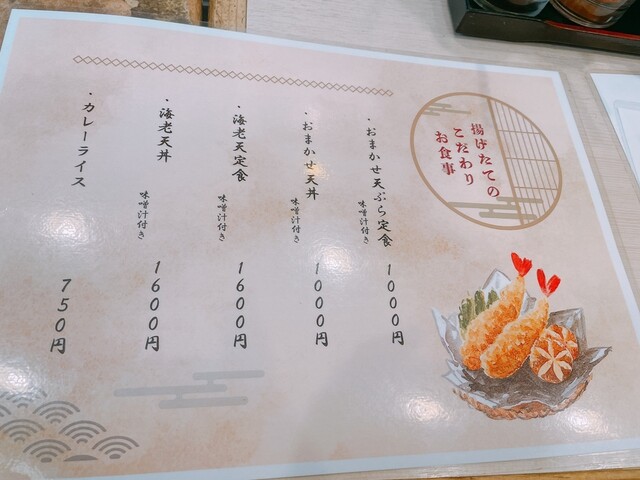 揚げたての
こだわり
お食事
・おまかせ天ぷら定食
味噌汁付き
1000円
・おまかせ天丼
味噌汁付き
1000円
・海老天定食
味噌汁付き
1600円
・海老天丼
味噌汁付き
1600円
・カレーライス
750円